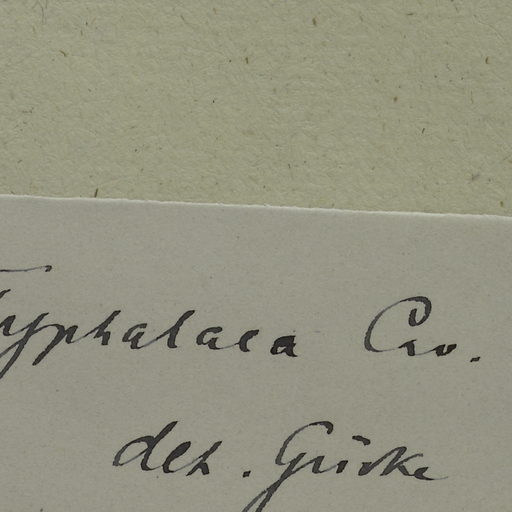 Typhalaea Cav.
det. Gürke